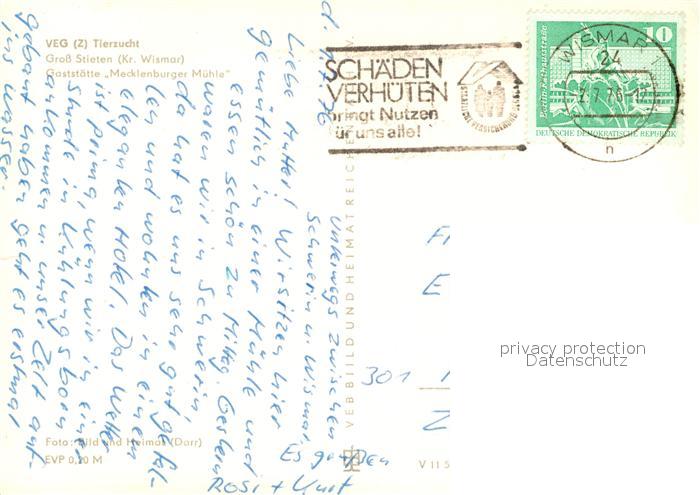 VEG (Z) Tierzucht
Groß Stieten (Kr. Wismar)
Gaststätte „Mecklenburger Mühle"
SCHÄDEN
VERHÜTEN
bringt Nutzen
für uns alle!
WISMAR 1
24
2.7.76
n
10
Berlin, Rathausstraße
DEUTSCHE DEMOKRATISCHE REPUBLIK
Unterwegs zwischen
Schwerin u. Wismar,
Liebe Mutter! Wir sitzen hier
gemütlich in einer Mühle und
essen schön zu Mittag. Gestern
waren wir in Schwerin,
da hat es uns sehr gut gefal-
len und wohnten in einem
eleganten Hotel. Das Wetter
ist prima, wenn wir in einer
Stunde in Kühlungsborn
ankommen u. unser Zelt auf-
gebaut haben geht es erstmal
ins Wasser.
Es grüßen
Rosi + Kurt
VEB BILD UND HEIMAT REICHENBACH
301
Foto: Bild und Heimat (Darr)
EVP 0,20 M
V 11 5
privacy protection
Datenschutz